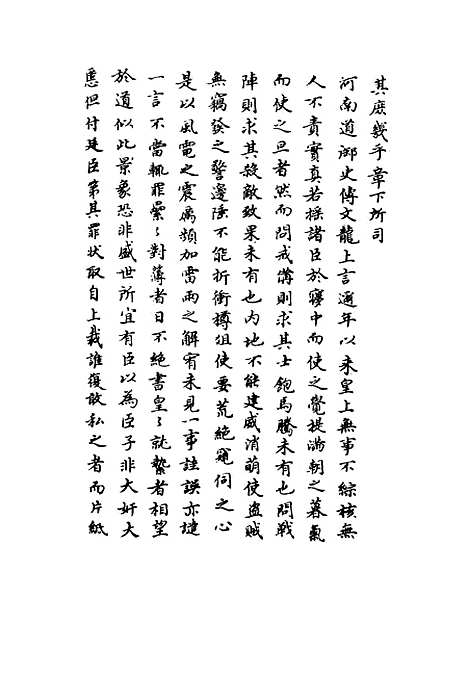 其庶幾乎章下所司
河南道御史傅文龍上言邇年以来皇上無事不綜核無
人不責實真若採諸臣於寢中而使之覺提滿朝之暮氣
而使之旦者然而問戒備則求其士飽馬騰未有也問戰
陣則求其殺敵致果未有也内地不能建威消萌使盗賊
無竊發之警邊陲不能折衝樽俎使要荒絶窺伺之心
是以風電之震厲頻加雷雨之解宥未見一事詿誤亦譴
一言不當輒罪纍纍對薄者日不絶書皇皇就縶者相望
於道似此景象恐非盛世所宜有臣以為臣子非大奸大
慝但付廷臣第其罪状取自上裁誰復敢私之者而片紙